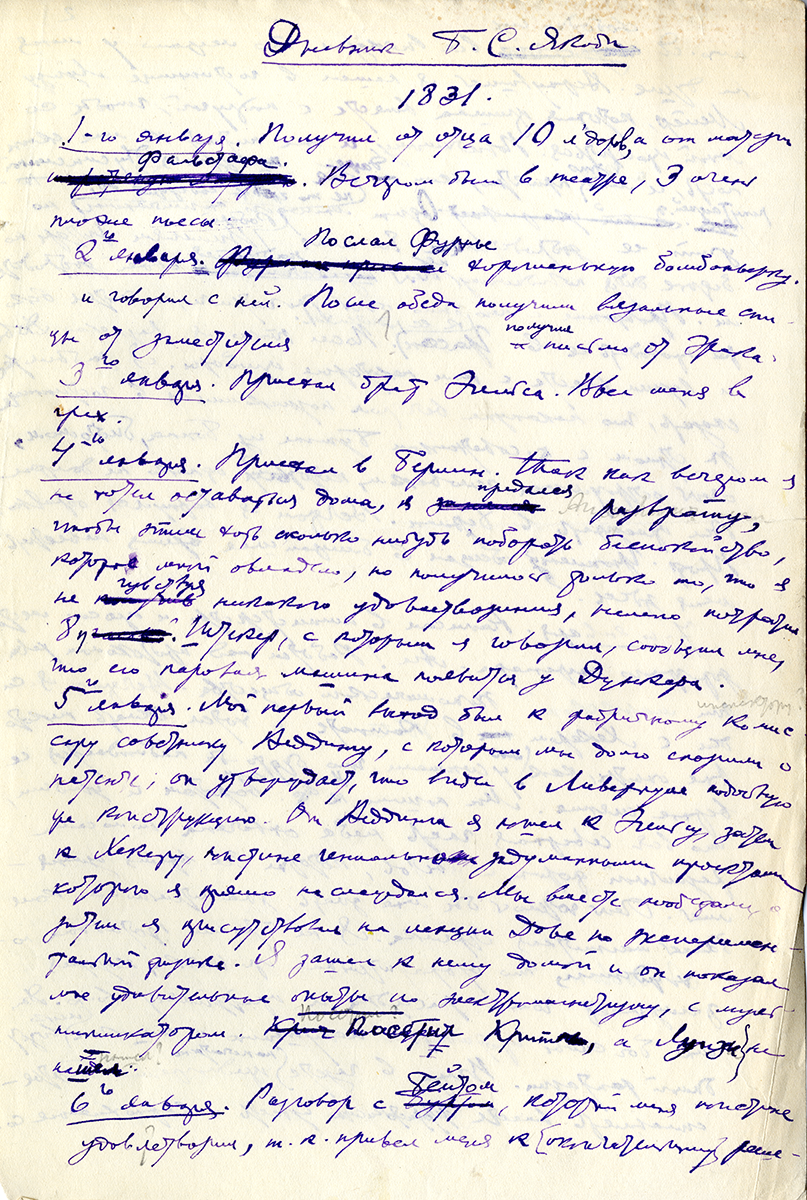 Дневник Б. С. Якоби
1831.
1-го января. Получил от отца 10 л'доров, а от матери
Фальстафа.
Вечером был в театре, 3 очень
плохие пьесы.
Послал Фурнье
2го января. хорошенькую бомбоньерку.
и говорил с ней. После обеда получил вязальные спи-
цы от
получил
письмо от
3го января. Приехал брат Ввел меня в
грех.
4го января. Приехал в Берлин. Так как вечером я
придался
не хотел оставаться дома, я разврату,
чтобы этим хоть сколько нибудь побороть беспокойство,
которое мной овладело, но получилось только то, что я
чувствуя
не никакого удовлетворения, нелепо потратил
с которым я говорил, сообщил мне,
что его паровая машина появится у Дункера.
инспектору?
5го января. Мой первый выход был к фабричному комис
сару советнику Веддингу, с которым мы долго спорили о
патенте; он утверждает, что видел в Ливерпуле подобную
же конструкцию. От Веддинга я пошел к затем
к Хеккеру, поистине гениально задуманными проектами
которого я прямо наслаждался. Мы вместе пообедали
затем я присутствовал на лекции Дове по эксперимен-
тальной физике. Я зашел к нему домой и он показал
мне удивительные опыты по электромагнетизму, с мульт
типликатором. а не
нашел.
Бейтом
6го января. Разговор с который меня поистине
удовлетворил, т. к. привел меня к [окончательному] реше-